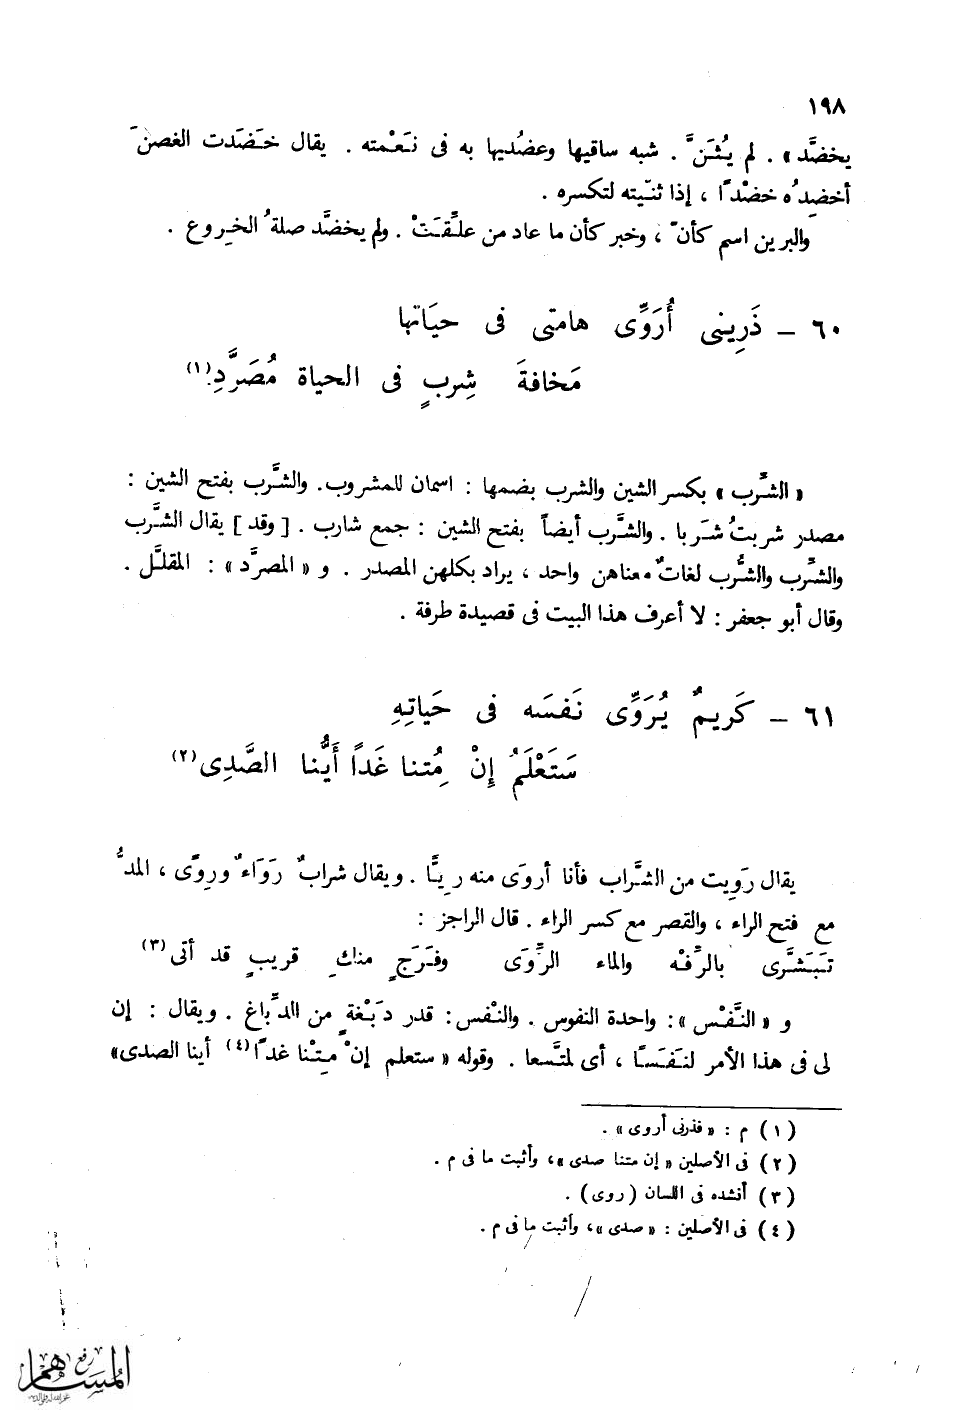 ١٩٨
يخضَّد» . لم يُثَنَّ . شبه ساقيها وعضُديها به فى نَعْمته . يقال خَضَدت الغصنَ
أخضِدُه خضْدًا ، إذا ثنَّيته لتكسره .
والبرين اسم كأنّ ، وخبر كأن ما عاد من علِّقَتْ . ولم يخضَّد صلةُ الخروع .
٦٠ – ذَرِينى أُرَوِّى هامتى فى حيَاتها
مَخافةَ شِربٍ فى الحياة مُصَرَّدِ(١)
« الشِّرب » بكسر الشين والشرب بضمها : اسمان للمشروب. والشَّرب بفتح الشين :
مصدر شربتُ شَربا . والشَّرب أيضاً بفتح الشين : جمع شارب . [ وقد ] يقال الشَّرب
والشِّرب والشُّرب لغاتٌ معناهن واحد ، يراد بكلهن المصدر . و « المصرَّد » : المقلَّل .
وقال أبو جعفر : لا أعرف هذا البيت فى قصيدة طرفة .
٦١ – كَريمٌ يُرَوِّى نَفسَه فى حَياتِهِ
سَتَعْلَمُ إِنْ مُِتنا غَداً أَيُّنا الصَّدِى(٢)
يقال رَوِيت من الشَّراب فأنا أروَى منه رِيًّا . ويقال شرابٌ رَوَاءٌ وروًى ، المدُّ
مع فتح الراء ، والقصر مع كسر الراء . قال الراجز :
تَبَشَّرى بالرِّفْه والماء الرِّوَى وفَرَجٍ منكِ قريبٍ قد أتى(٣)
و « النَّفْس » : واحدة النفوس . والنفْس : قدر دَبْغةٍ من الدِّباغ . ويقال : إن
لى فى هذا الأمر لنَفَسًا ، أى لمتَّسعا . وقوله « ستعلم إنْ مُِتْنا غدًا(٤) أينا الصدى»
(١) م : « فذرنى أروى » .
(٢) فى الأصلين « إن متنا صدى »، وأثبت ما فى م .
(٣) أنشده فى اللسان (روى) .
(٤) فى الأصلين : « صدى »، وأثبت ما فى م .
رفع
المساهم